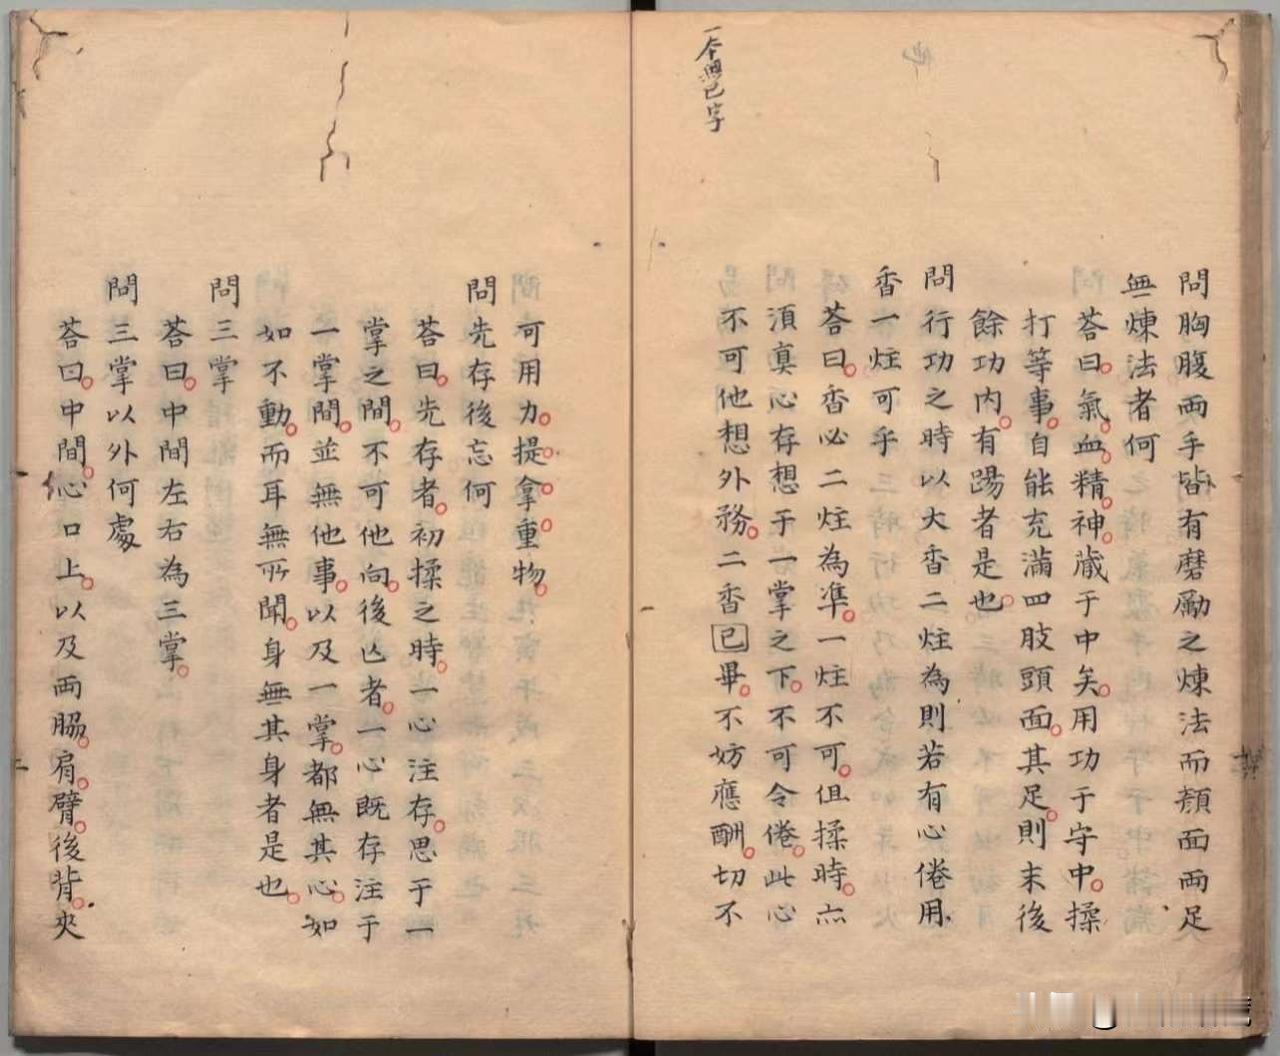 一本無已字
問胸腹兩手皆有磨勵之煉法而顏面兩足
無煉法者何
荅曰。氣。血。精。神。蔵于中矣。用功于守中。揉
打等事。自能充滿四肢頭面。其足。則末後
餘功内。有踢者是也。
問行功之時以大香二炷為則若有心倦用
香一炷可乎
荅曰。香必二炷為凖。一炷不可。但揉時。亦
湏真心存想于一掌之下。不可令倦。此心
不可他想外務。二香已畢。不妨應酬。切不
可用力。提。拿。重。物。
問先存後忘何
荅曰。先存者。初揉之時。一心注存。思于一
掌之間。不可他向。後亾者。一心既存注于
一掌間。並無他事。以及一掌。都無其心。如
如不動。而耳無所聞。身無其身者是也。
問三掌
荅曰。中間左右為三掌。
問三掌以外何處
荅曰。中間。心口上。以及両脇。肩。臂。後背。夾